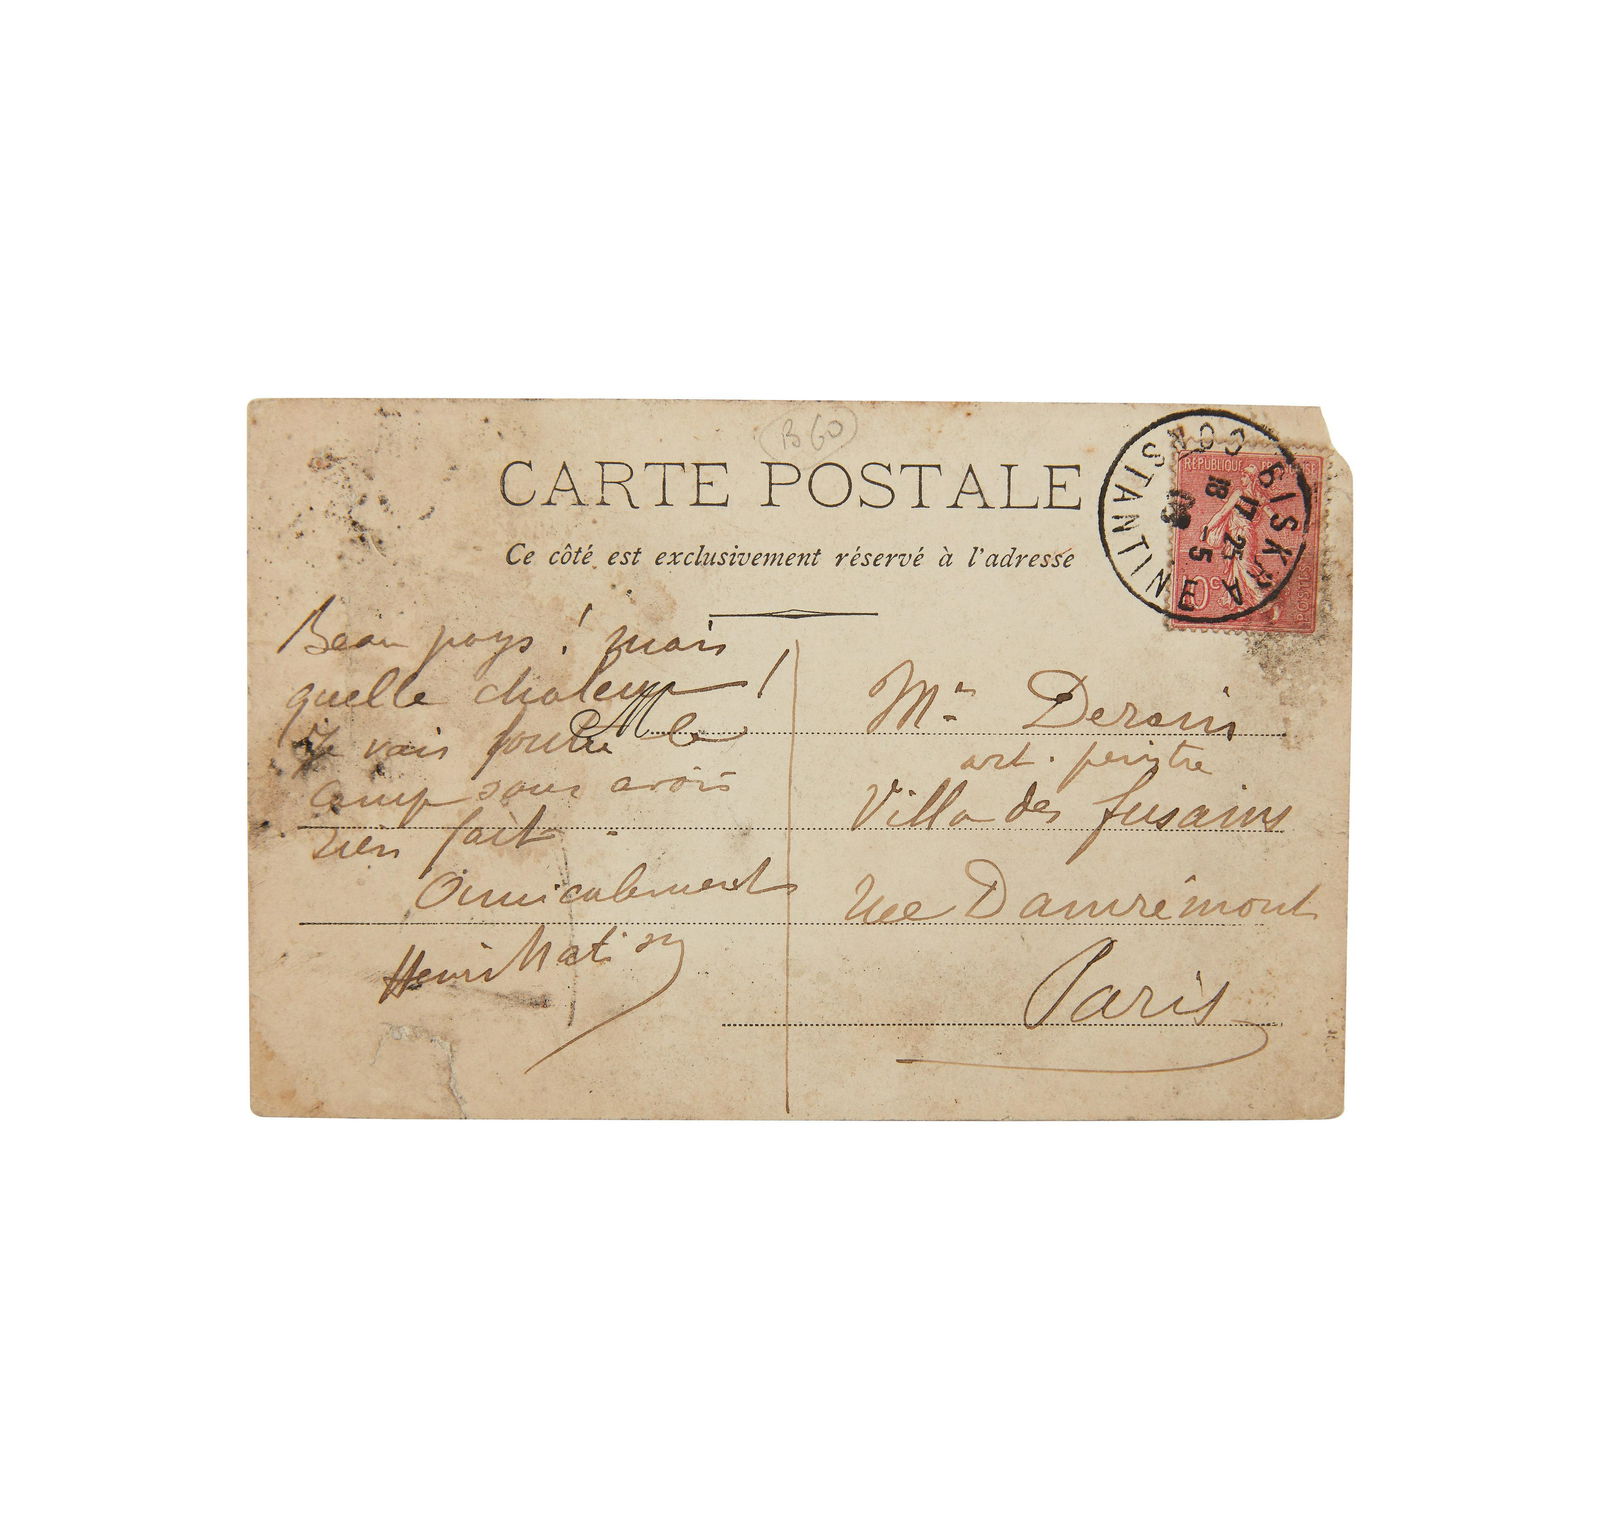 B60
CARTE POSTALE
Ce côté est exclusivement réservé à l'adresse
RÉPUBLIQUE FRANÇAISE
POSTES
10c
BISKRA
CONSTANTINE
17 25
18 -5
Beau pays ! mais
quelle chaleur !
Je vais foutre le
camp sans avoir
rien fait.
Amicalement
Henri Matisse
M
Mr Derain
art. peintre
Villa des fusains
rue Damrémont
Paris